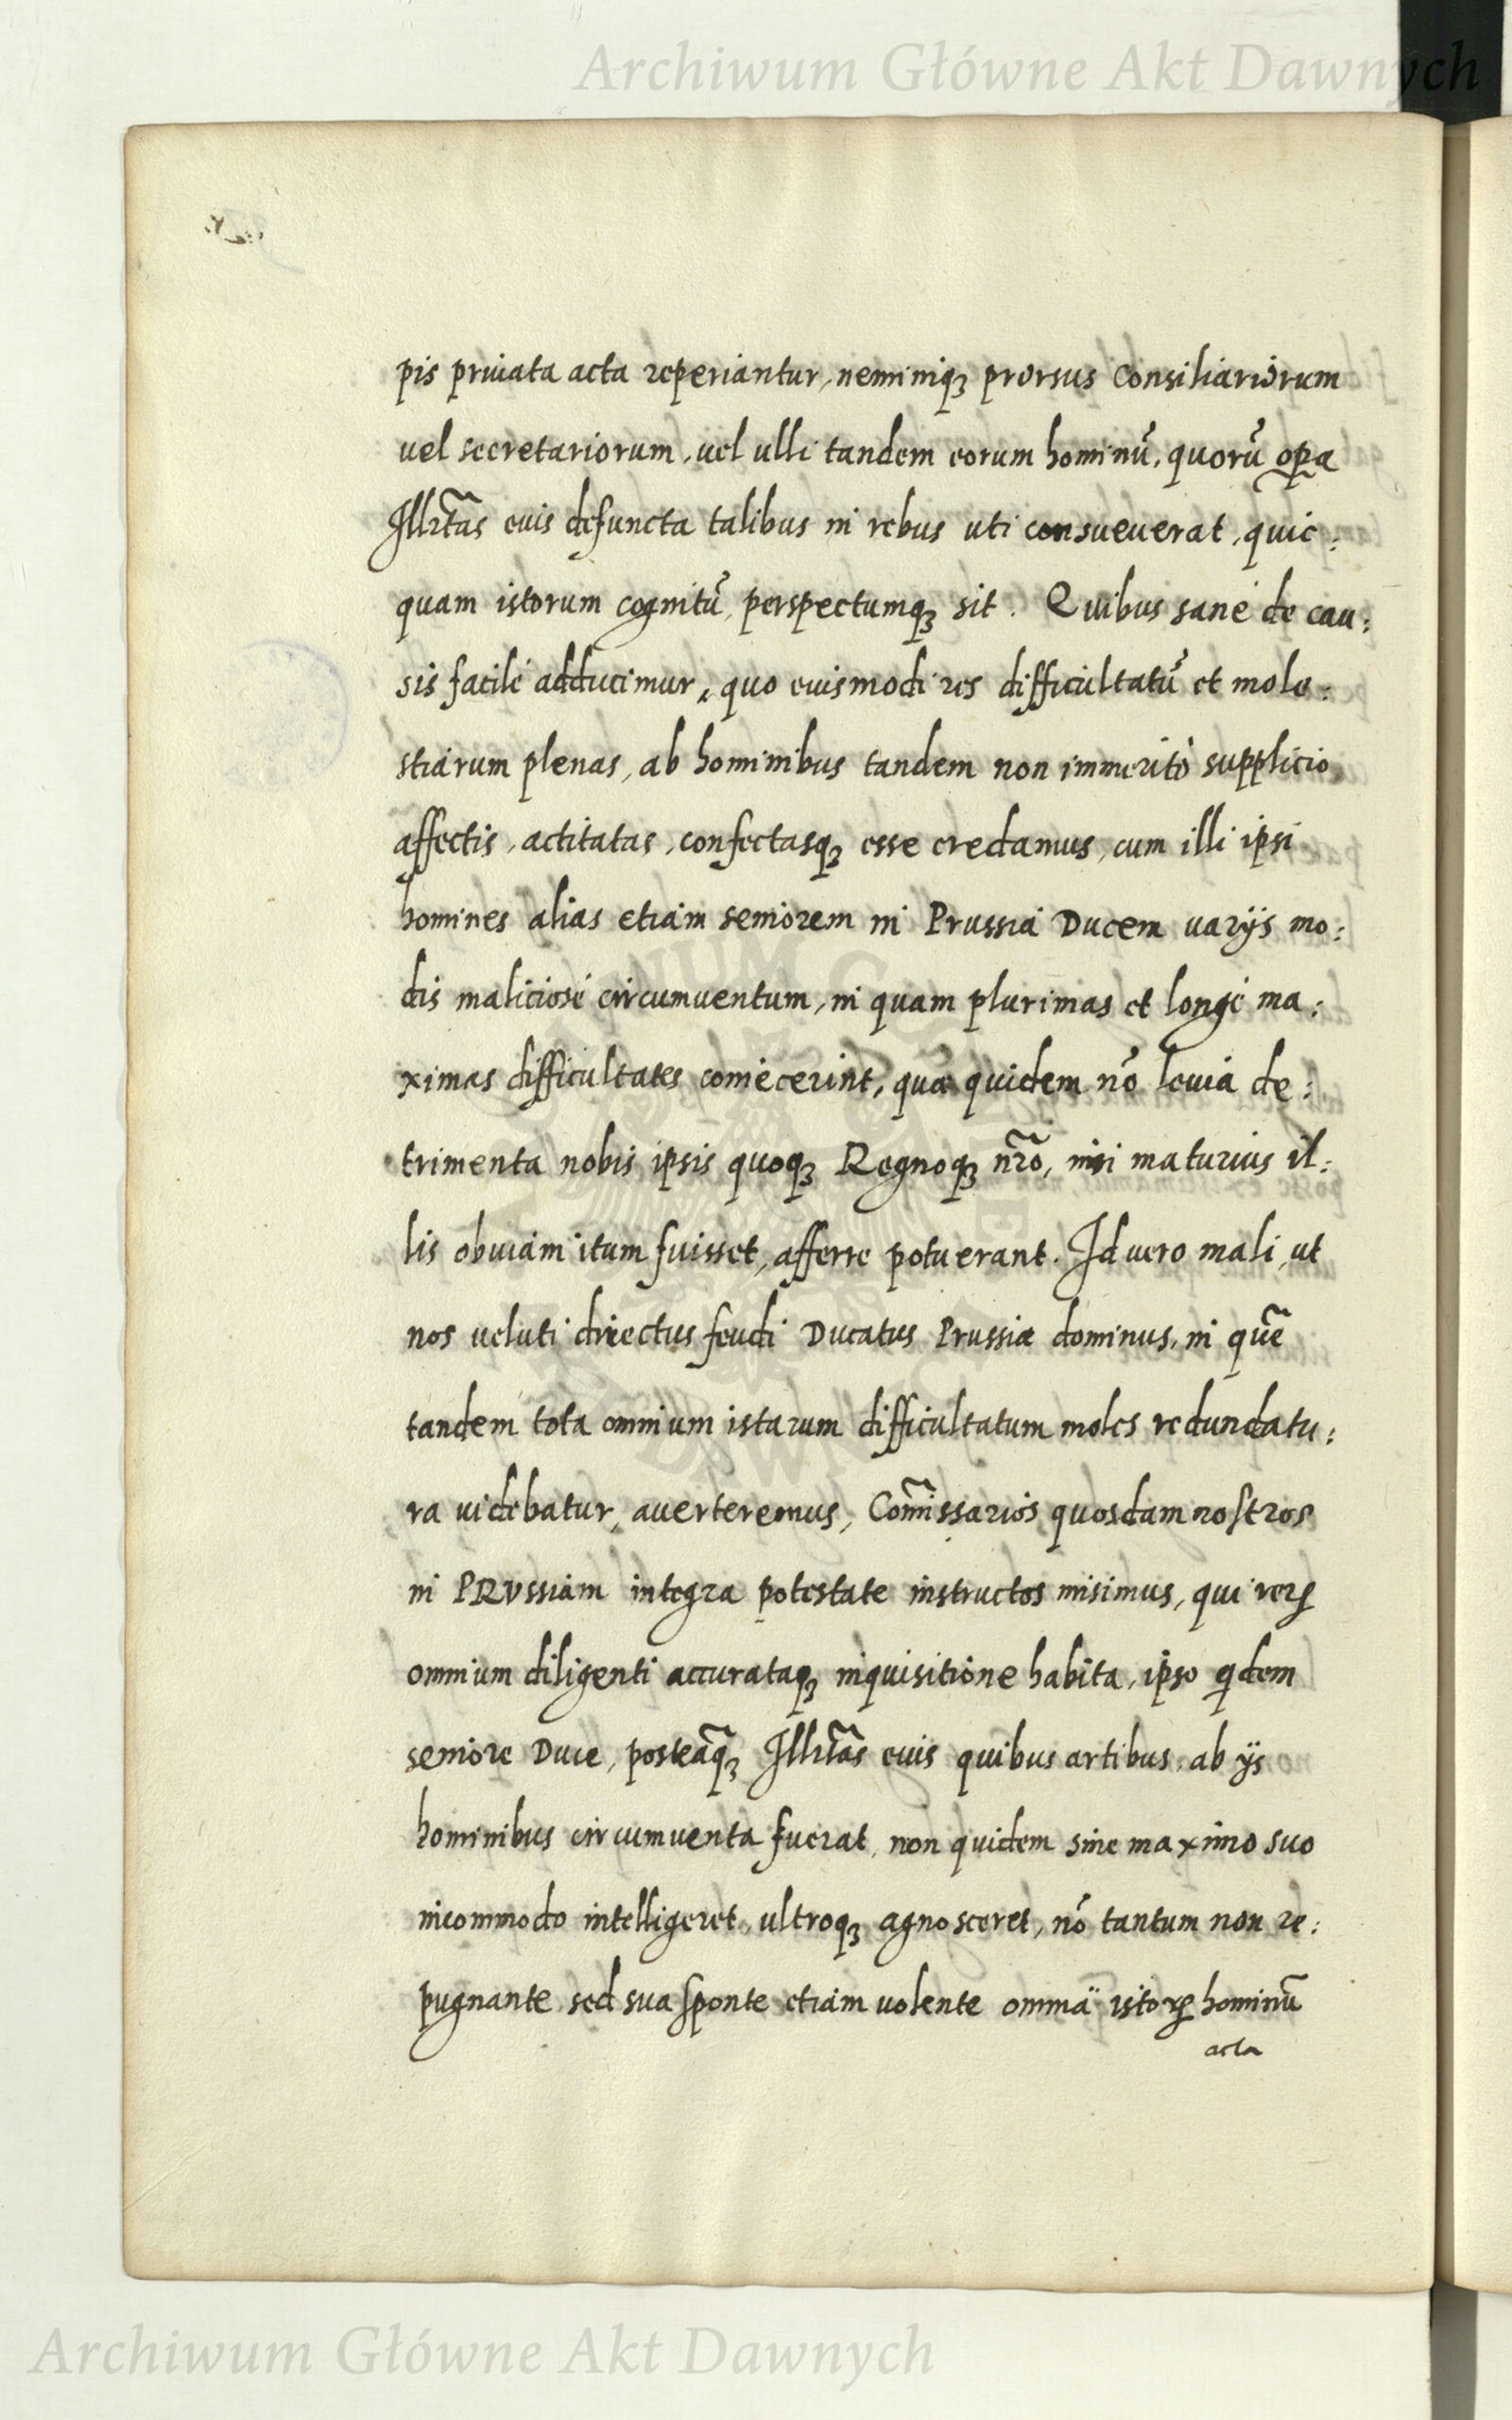 Archiwum Główne Akt Dawnych
pis priuata acta reperiantur, neminiqꝫ prorsus Consiliariorum
uel secretariorum, uel ulli tandem eorum hominũ, quorũ oꝑa
Illr̃tas euis defuncta talibus in rebus uti consueuerat, quic:
quam istorum cognitũ, perspectumqꝫ sit. Quibus sanè de cau:
sis facilè adducimur, quo euismodi res difficultatũ et mole:
stiarum plenas, ab hominibus tandem non immeritò supplicio
affectis, actitatas, confectasqꝫ esse credamus, cum illi ipsi
homines alias etiam seniorem in Prussia Ducem varijs mo:
dis maliciosè circumuentum, in quam plurimas et longè ma:
ximas difficultates coniecerint, quæ quidem nõ leuia de:
trimenta nobis ipsis quoqꝫ Regnoqꝫ nr̃o, nisi maturius il:
lis obuiam itum fuisset, afferre potuerant. Id uero mali, ut
nos ueluti directus feudi Ducatus Prussiæ dominus, in quẽ
tandem tota omnium istarum difficultatum moles redundatu:
ra uidebatur, auerteremus, Com̃issarios quosdam nostros
in PRVssiam integra potestate instructos misimus, qui reꝝ
omnium diligenti accurataqꝫ inquisitione habita, ipso qdem
seniore Duce, posteãqꝫ Illr̃tas euis quibus artibus, ab ijs
hominibus circumuenta fuerat, non quidem sine maximo suo
incommodo intelligeret, ultroqꝫ agnosceret, nõ tantum non re:
pugnante sed sua sponte etiam uolente omnia istoꝝ hominũ
acta
Archiwum Główne Akt Dawnych